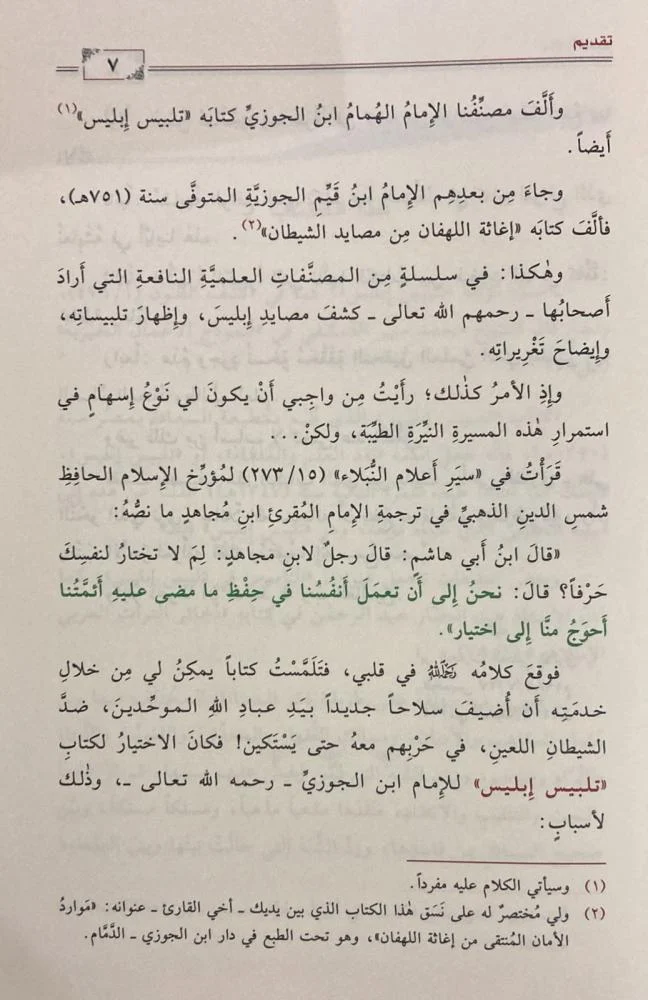 تقديم
٧
وأَلَّفَ مصنِّفُنا الإِمامُ الهُمامُ ابنُ الجوزيِّ كتابَه «تلبيس إِبليس»(١)
أَيضاً.
وجاءَ مِن بعدِهِم الإِمامُ ابنُ قَيِّمِ الجوزيَّةِ المتوفَّى سنة (٧٥١هـ)،
فألَّفَ كتابَه «إِغاثة اللهفان مِن مصايد الشيطان»(٢).
وهٰكذا: في سلسلةٍ مِن المصنَّفاتِ العلميَّةِ النافعةِ التي أَرادَ
أَصحابُها ـ رحمهم الله تعالى ـ كشفَ مصايدِ إِبليسَ، وإِظهارَ تلبيساتِه،
وإِيضاحَ تَغْريراتِه.
وإِذِ الأمرُ كذٰلك؛ رأَيْتُ مِن واجبي أَنْ يكونَ لي نَوْعُ إِسهامٍ في
استمرارِ هٰذه المسيرةِ النيِّرَةِ الطيِّبة، ولكنْ...
قَرَأْتُ في «سيَرِ أَعلام النُّبَلاء» (٢٧٣/١٥) لمؤرِّخ الإِسلام الحافِظِ
شمسِ الدينِ الذهبيِّ في ترجمةِ الإِمامِ المُقرئِ ابنِ مُجاهدٍ ما نصُّهُ:
«قالَ ابنُ أَبي هاشمٍ: قالَ رجلٌ لابنِ مجاهدٍ: لِمَ لا تختارُ لنفسِكَ
حَرْفاً؟ قالَ: نحنُ إِلى أَن تعمَلَ أَنفُسُنا في حِفْظِ ما مضى عليهِ أَئمَّتُنا
أَحوَجُ منَّا إِلى اختيار».
فوقعَ كلامُه رَحِمَهُ اللهُ في قلبي، فتَلَمَّسْتُ كتاباً يمكِنُ لي مِن خلالِ
خدمَتِه أَن أُضيفَ سلاحاً جديداً بيَدِ عبادِ اللهِ الموحِّدينَ، ضدَّ
الشيطانِ اللعينِ، في حَرْبِهم معهُ حتى يَسْتَكين! فكانَ الاختيارُ لكتابِ
«تلبيس إِبليس» للإِمام ابن الجوزيِّ ـ رحمه الله تعالى ـ، وذٰلك
لأسبابٍ:
(١) وسيأتي الكلام عليه مفرداً.
(٢) ولي مُختصرٌ له على نَسَق هٰذا الكتاب الذي بين يديك ـ أخي القارئ ـ عنوانه: «مَواردُ
الأمان المُنتقى من إغاثة اللهفان»، وهو تحت الطبع في دار ابن الجوزي ـ الدَّمَّام.